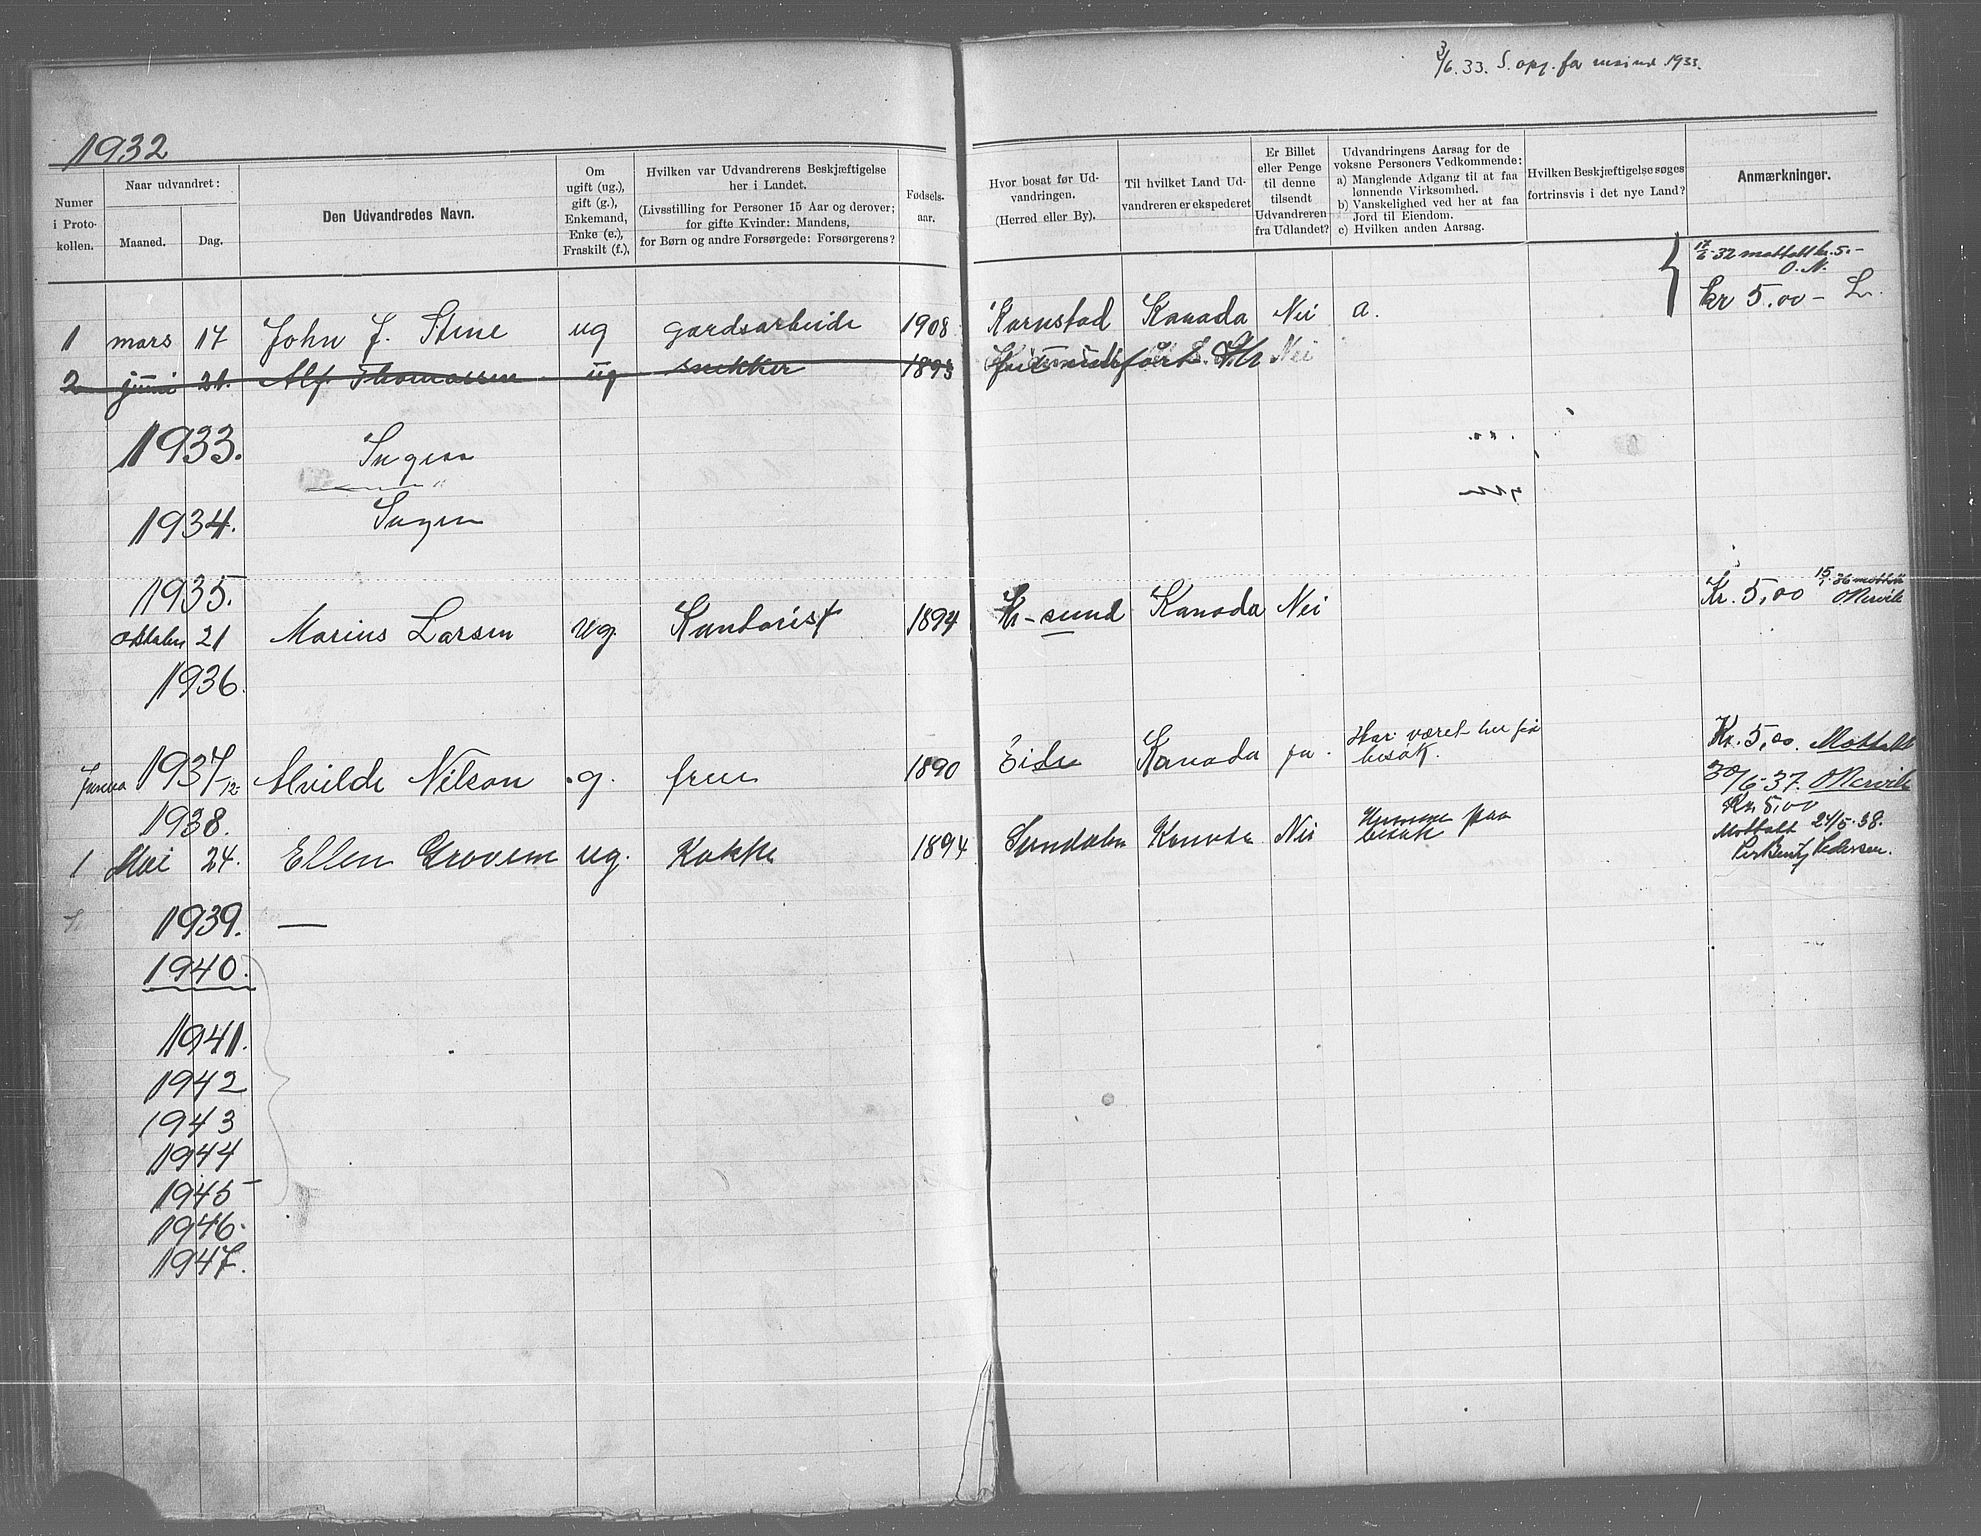 3/6.33. S. opg. for 1933.
1932
Numer i Protokollen.
Naar udvandret:
Maaned.
Dag.
Den Udvandredes Navn.
Om ugift (ug.), gift (g.), Enkemand, Enke (e.), Fraskilt (f.),
Hvilken var Udvandrerens Beskjæftigelse her i Landet.
(Livsstilling for Personer 15 Aar og derover; for gifte Kvinder: Mandens, for Børn og andre Forsørgede: Forsørgerens?
Fødsels-aar.
Hvor bosat før Ud-vandringen.
(Herred eller By).
Til hvilket Land Ud-vandreren er ekspederet
Er Billet eller Penge til denne tilsendt Udvandreren fra Udlandet?
Udvandringens Aarsag for de voksne Personers Vedkommende:
a) Manglende Adgang til at faa lønnende Virksomhed.
b) Vanskelighed ved her at faa Jord til Eiendom.
c) Hvilken anden Aarsag.
Hvilken Beskjæftigelse søges fortrinsvis i det nye Land?
Anmærkninger.
17/6-32 mottatt kr. 5.-
O. N.
1 mars 17 John J. Stene ug gardsarbeide 1908 Kornstad Kanada Nei a. kr 5,00 -
2 juni 21. Alf Thomassen ug snekker 1893 Nei
1933. Ingen
1934. Ingen
1935.
Oktober 21 Marius Larsen ug. Kontorist 1894 Kr-sund Kanada Nei Kr. 5,00 15/1-36 mottatt
1936.
1937 12 Alvilde Nilson g. frue 1890 Eide Kanada ja. Har været her på besøk. Kr. 5,00. Mottatt
30/6-37.
1938. Kr. 5,00
1 Mai 24. Ellen Grovem ug. Kokke 1894 Sundalen Kanada Nei Hjemme paa besøk Mottatt 24/5-38.
Pedersen.
1939. —
1940.
1941.
1942
1943
1944
1945
1946.
1947.